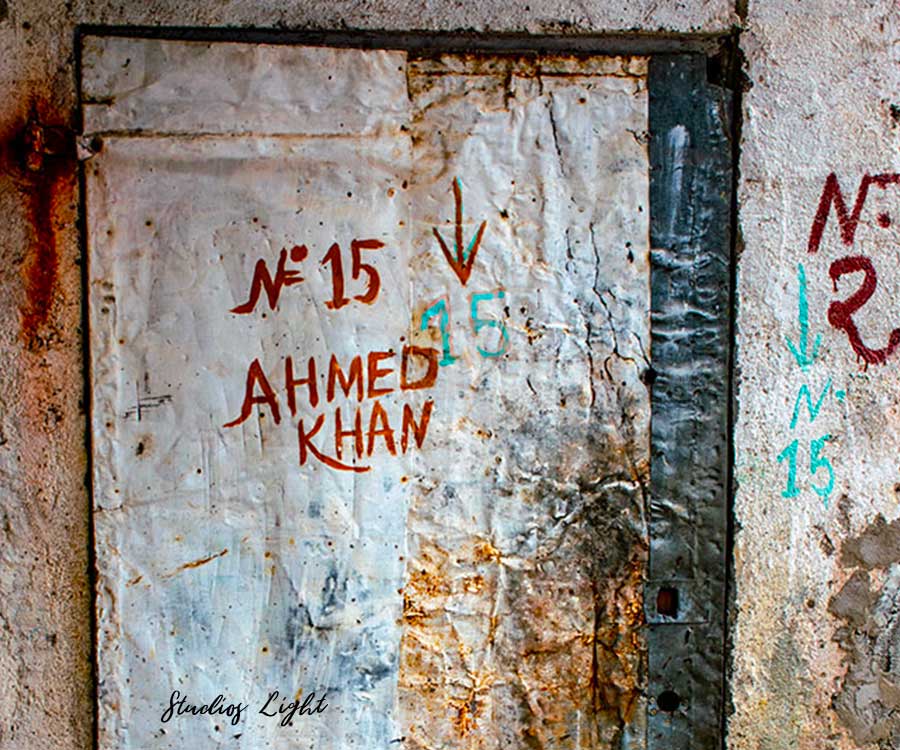 Nº 15
15
AHMED
KHAN
Nº
2
N.
15
Studios Light